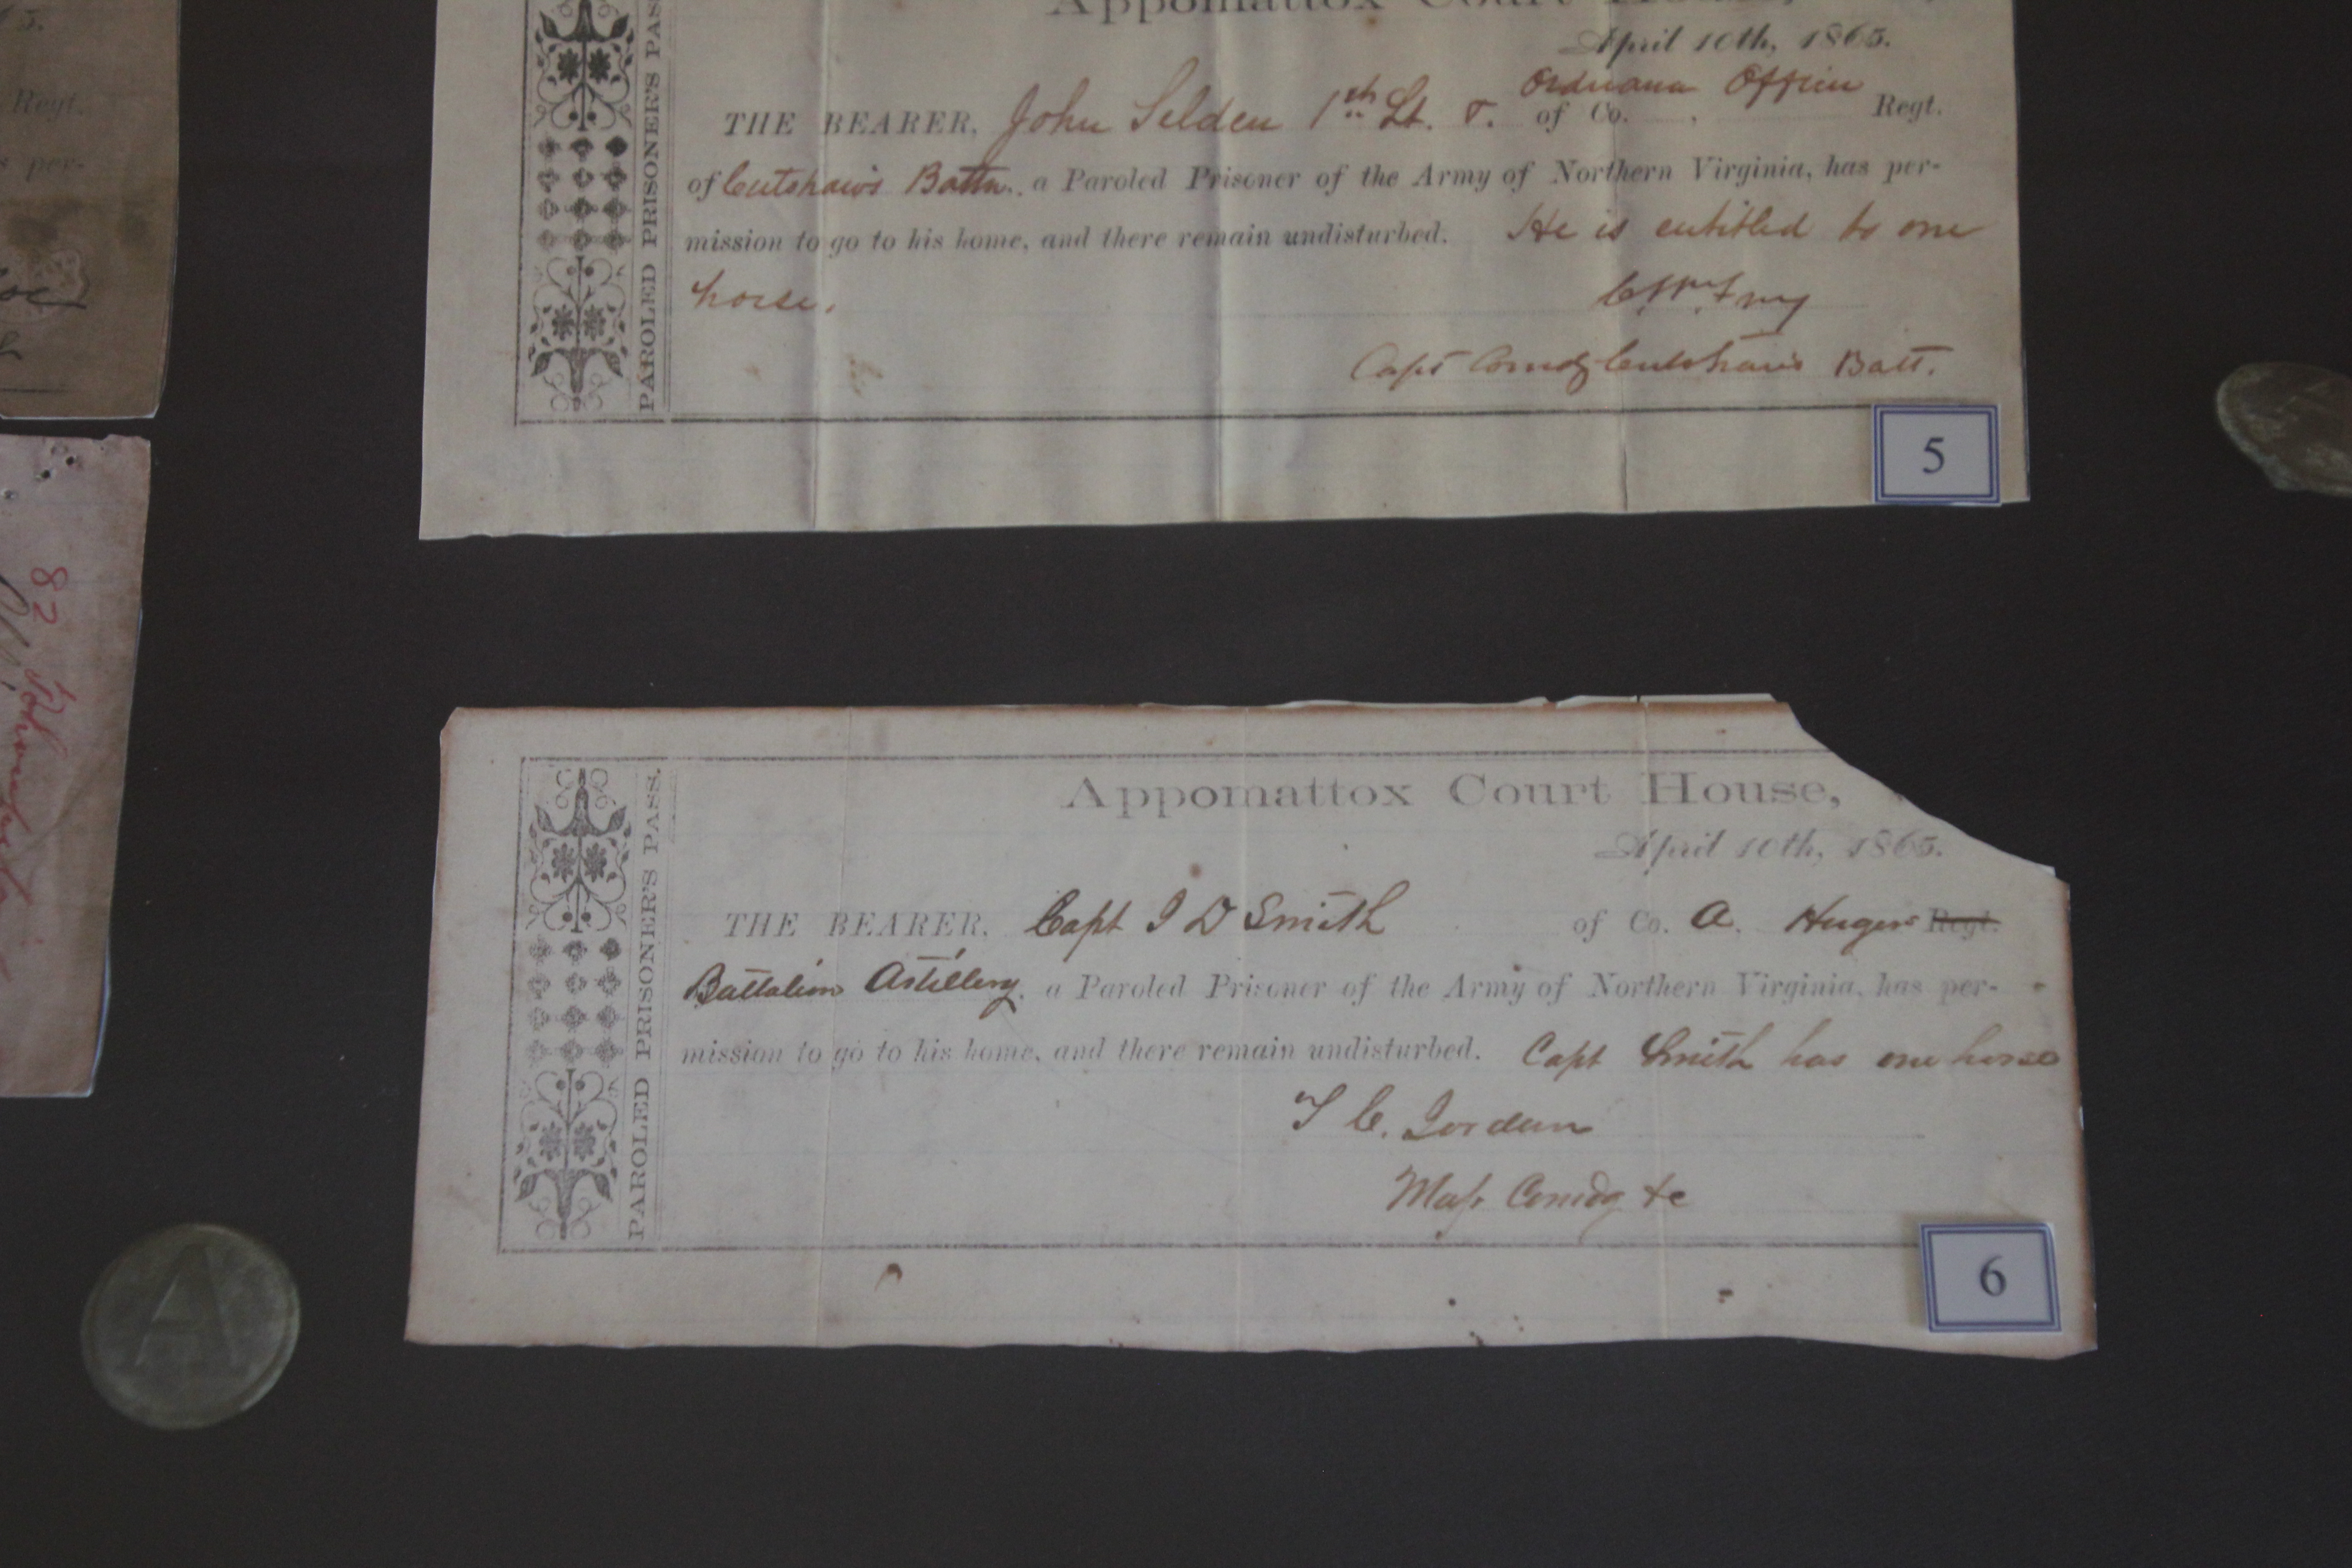 5.
Regt.
s per-
82
Appomattox Court House,
April 10th, 1865.
THE BEARER, John Selden 1st Lt. & Ordnance Officer of Co. , Regt.
of Cutshaw's Battn. a Paroled Prisoner of the Army of Northern Virginia, has per-
mission to go to his home, and there remain undisturbed. He is entitled to one
horse.
Capt Comdg Cutshaw's Batt.
PAROLED PRISONER'S PAS
5
Appomattox Court House,
April 10th, 1865.
THE BEARER, Capt J D Smith of Co. A. Hugers Regt.
Battalion Artillery, a Paroled Prisoner of the Army of Northern Virginia, has per-
mission to go to his home, and there remain undisturbed. Capt Smith has one horse
T C. Jordan
Maj Comdg &c
PAROLED PRISONER'S PASS.
6
A